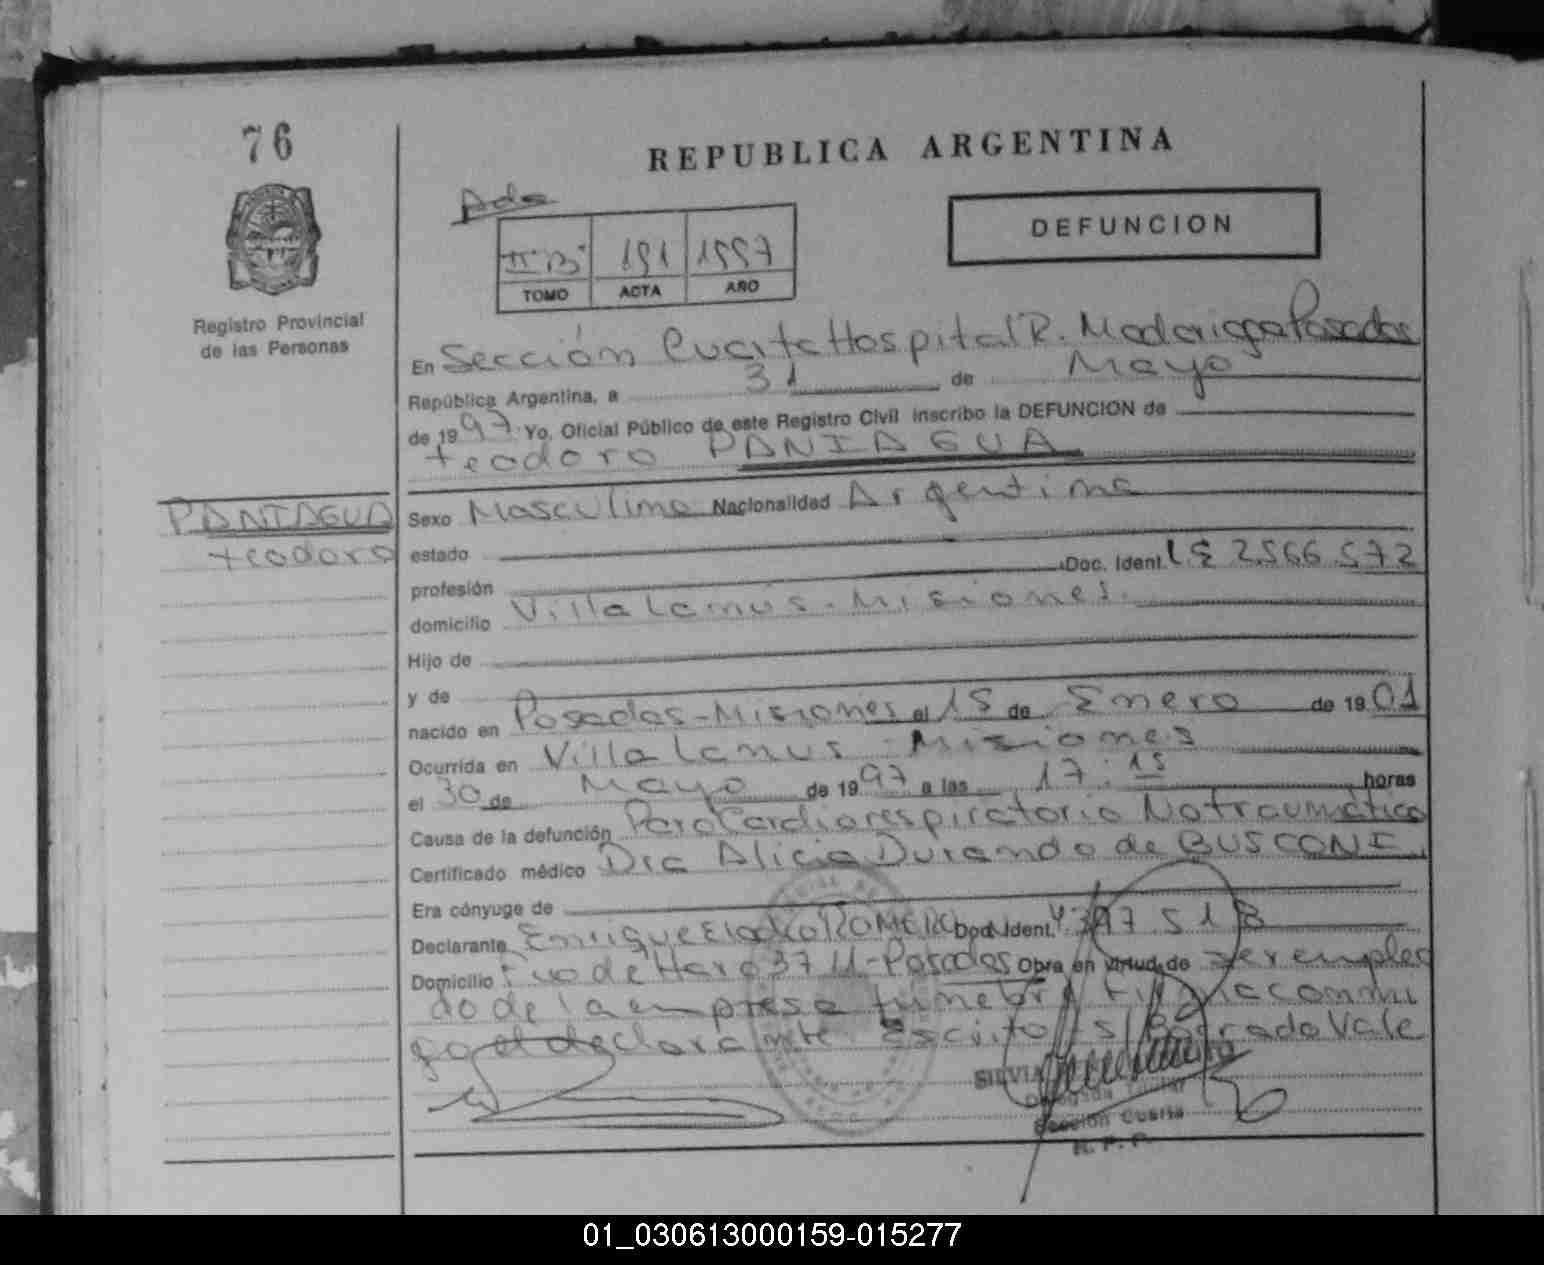 76
REPUBLICA ARGENTINA
Registro Provincial
de las Personas
Ada
II "B" 191 1997
TOMO ACTA AÑO
DEFUNCION
En Sección Cuarta Hospital R. Madariaga Posadas
República Argentina, a 31 de Mayo
de 1997. Yo, Oficial Público de este Registro Civil inscribo la DEFUNCION de
teodoro PANIAGUA
PANIAGUA
teodoro
Sexo Masculino Nacionalidad Argentina
estado
profesión Doc. Ident. L E 2.566.572
domicilio Villa Lanús - Misiones.
Hijo de
y de
nacido en Posadas - Misiones el 15 de Enero de 1901
Ocurrida en Villa Lanus - Misiones
el 30 de Mayo de 1997 a las 17:15 horas
Causa de la defunción Paro Cardiorespiratorio No traumático
Certificado médico Dra Alicia Durando de BUSCONI.
Era cónyuge de
Declarante Enrique ROMERO Doc. Ident.
Domicilio de Haro 37 11 - Posadas Obra en virtud de ser emplea
do de la empresa funebre Firma conmi
go el declarante. Escrito s/ Borrado Vale
SILVIA
Delegada
Sección Cuarta
R. P. P.
01_030613000159-015277